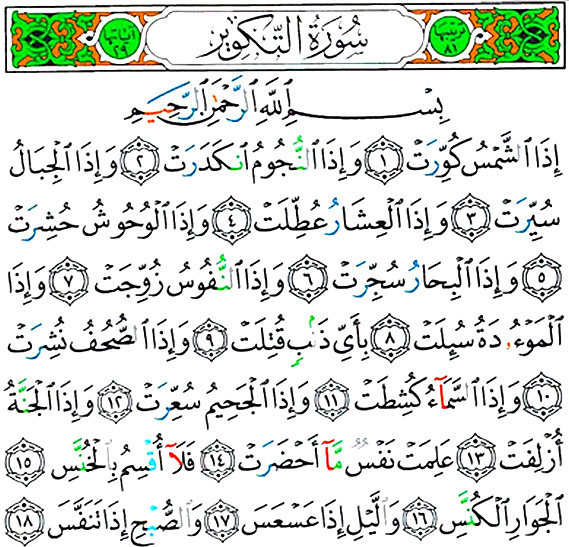 ترتيبها ٨١ سُورَةُ التَّكْوِيرِ آياتها ٢٩
بِسْمِ ٱللَّهِ ٱلرَّحْمَٰنِ ٱلرَّحِيمِ
إِذَا ٱلشَّمْسُ كُوِّرَتْ ١ وَإِذَا ٱلنُّجُومُ ٱنكَدَرَتْ ٢ وَإِذَا ٱلْجِبَالُ
سُيِّرَتْ ٣ وَإِذَا ٱلْعِشَارُ عُطِّلَتْ ٤ وَإِذَا ٱلْوُحُوشُ حُشِرَتْ
٥ وَإِذَا ٱلْبِحَارُ سُجِّرَتْ ٦ وَإِذَا ٱلنُّفُوسُ زُوِّجَتْ ٧ وَإِذَا
ٱلْمَوْءُۥدَةُ سُئِلَتْ ٨ بِأَىِّ ذَنۢبٍ قُتِلَتْ ٩ وَإِذَا ٱلصُّحُفُ نُشِرَتْ
١٠ وَإِذَا ٱلسَّمَآءُ كُشِطَتْ ١١ وَإِذَا ٱلْجَحِيمُ سُعِّرَتْ ١٢ وَإِذَا ٱلْجَنَّةُ
أُزْلِفَتْ ١٣ عَلِمَتْ نَفْسٌ مَّآ أَحْضَرَتْ ١٤ فَلَآ أُقْسِمُ بِٱلْخُنَّسِ ١٥
ٱلْجَوَارِ ٱلْكُنَّسِ ١٦ وَٱلَّيْلِ إِذَا عَسْعَسَ ١٧ وَٱلصُّبْحِ إِذَا تَنَفَّسَ ١٨